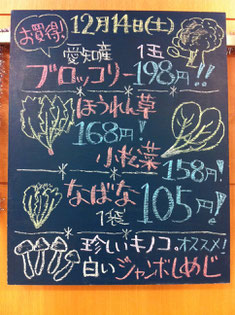 お買得!
12月14日(土)
愛知産 1玉
ブロッコリー198円!!
ほうれん草
168円!
小松菜
158円!
なばな
1袋 105円!
珍しいキノコ。オススメ!
白いジャンボしめじ